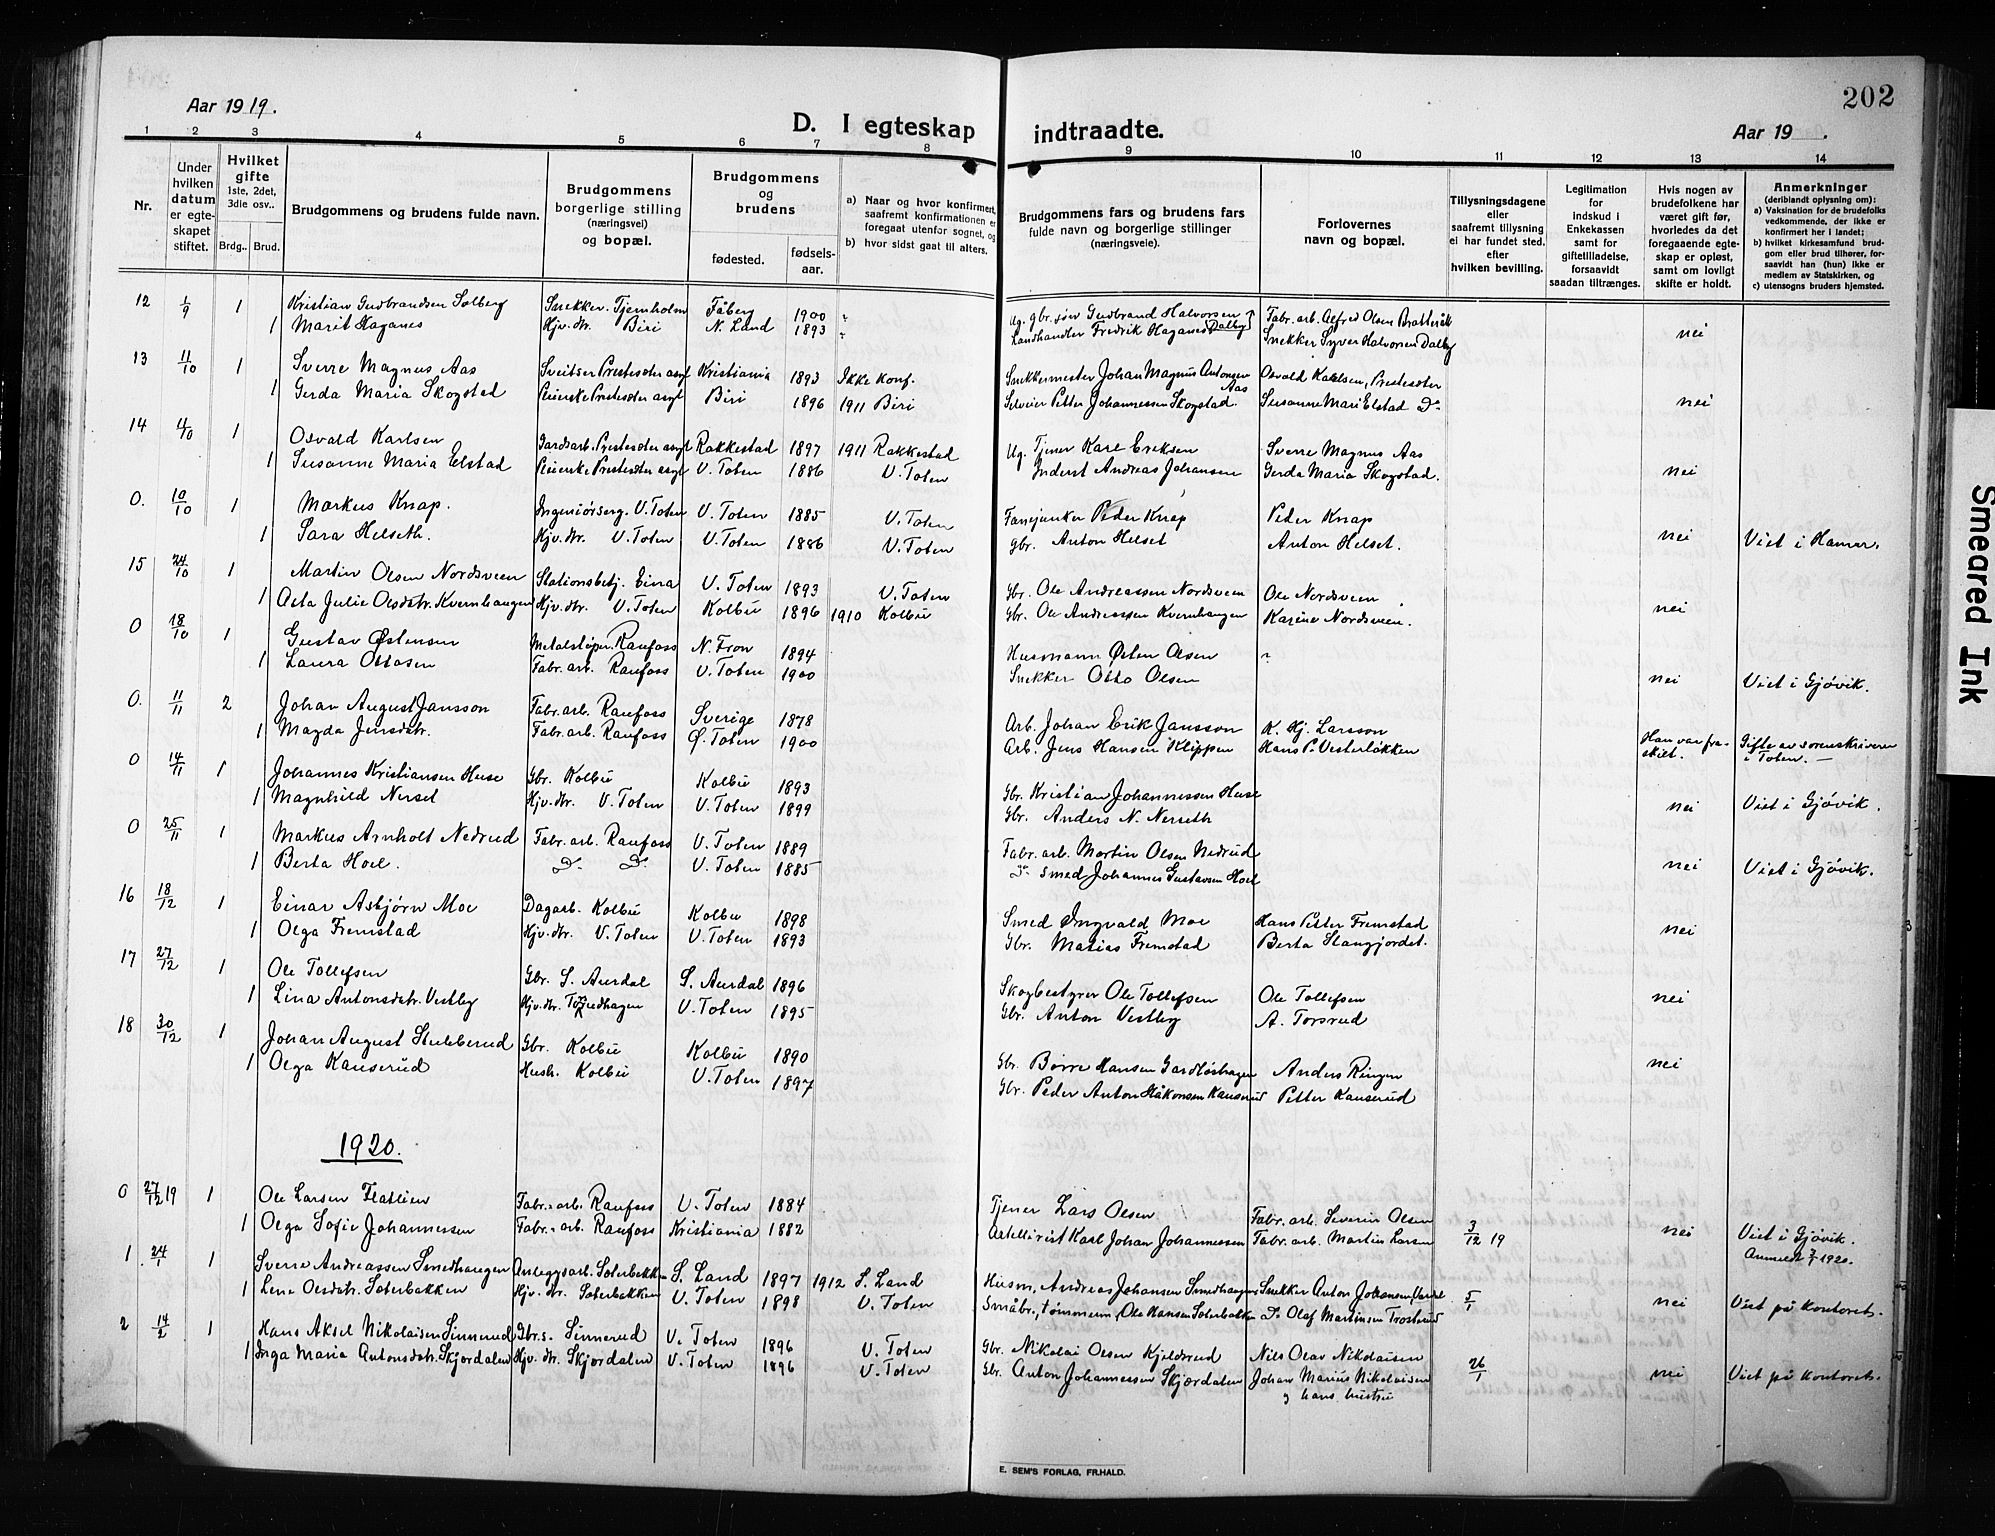 202
Aar 1919.
D. I egteskap indtraadte.
Aar 19 .
1 2 3 4 5 6 7 8 9 10 11 12 13 14
Nr.
Under hvilken datum er egteskapet stiftet.
Hvilket gifte 1ste, 2det, 3die osv..
Brdg.. Brud.
Brudgommens og brudens fulde navn.
Brudgommens borgerlige stilling (næringsvei) og bopæl.
Brudgommens og brudens
fødested. fødsels-aar.
a) Naar og hvor konfirmert, saafremt konfirmationen er foregaat utenfor sognet, og
b) hvor sidst gaat til alters.
Brudgommens fars og brudens fars fulde navn og borgerlige stillinger (næringsveie).
Forlovernes navn og bopæl.
Tillysningsdagene eller saafremt tillysning ei har fundet sted. efter hvilken bevilling.
Legitimation for indskud i Enkekassen samt for giftetilladelse, forsaavidt saadan tiltrænges.
Hvis nogen av brudefolkene har været gift før, hvorledes da det foregaaende egteskap er opløst, samt om lovligt skifte er holdt.
Anmerkninger (deriblandt oplysning om):
a) Vaksination for de brudefolks vedkommende, der ikke er konfirmert her i landet;
b) hvilket kirkesamfund brudgom eller brud tilhører, forsaavidt han (hun) ikke er medlem av Statskirken, og
c) utensogns bruders hjemsted.
12 1/9 1 Kristian Gudbrandsen Solberg Snekker Tjernholm Fåberg 1900 Ug. gbr. søn Gudbrand Halvorsen Dalby Fabr. arb. Alfred Olsen Bratterik
1 Marit Haganes Hjv. dtr. Biri N. Land 1893 Landhandler Fredrik Haganes Snekker Syver Halvorsen Dalby nei
13 11/10 1 Sverre Magnus Aas Sveitser Prestesæter asyl Kristiania 1893 Ikke konf. Snekkermester Johan Magnus Antonsen Aas Osvald Karlsen, Prestesæter
1 Gerda Maria Skogstad Pleierske Prestesæter asyl Biri 1896 1911 Biri Selveier Petter Johannessen Skogstad. Susanne Mari Elstad Do nei
14 11/10 1 Osvald Karlsen Gardsarb. Prestesæter asyl Rakkestad 1897 1911 Rakkestad Ug. Tjener Karl Eriksen Sverre Magnus Aas
1 Susanne Maria Elstad Pleierske Prestesæter asyl V. Toten 1886 V. Toten Inderst Andreas Johansen Gerda Maria Skogstad. nei
0. 10/10 1 Markus Knap. Ingeniørserg. V. Toten V. Toten 1885 V. Toten Fanejunker Peder Knap Peder Knap
1 Sara Helseth. Hjv. dtr. V. Toten V. Toten 1886 V. Toten gbr. Anton Helset Anton Helset. nei Viet i Hamar.
15 24/10 1 Martin Olsen Nordsveen Stationsbetj. Eina V. Toten 1893 V. Toten Gbr. Ole Andreassen Nordsveen Ole Nordsveen
1 Asta Julie Olsdatr. Kvernhaugen Hjv. dtr. V. Toten Kolbu 1896 1910 Kolbu Gbr. Ole Andreassen Kvernhaugen Karine Nordsveen. nei
0 18/10 1 Gustav Østensen Metalstøper Raufoss N. Fron 1894 Husmann Østen Olsen
1 Laura Ottosen Fabr. arb. Raufoss V. Toten 1900 Snekker Otto Olsen nei Viet i Gjøvik.
0. 11/11 2 Johan August Jansson Fabr. arb. Raufoss Sverige 1878 Arb. Johan Erik Jansson K. Hj. Larsson
1 Magda Jensdtr. Fabr. arb. Raufoss Ø. Toten 1900 Arb. Jens Hansen Klippen Hans P. Vesterløkken Han var fraskilt. Gifte av sorenskriveren i Toten.
0 14/11 1 Johannes Kristiansen Huse Gbr. Kolbu Kolbu 1893 Gbr. Kristian Johannessen Huse
1 Magnhild Nerset Hjv. dtr. V. Toten V. Toten 1899 Gbr. Anders N. Nerseth nei Viet i Gjøvik.
0 25/11 1 Markus Arnholt Nedrud Fabr. arb. Raufoss V. Toten 1889 Fabr. arb. Martin Olsen Nedrud
1 Berta Hoel. Do Do V. Toten 1885 Do smed Johannes Gustavsen Hoel nei Viet i Gjøvik.
16 18/12 1 Einar Asbjørn Moe Dagarb. Kolbu Kolbu 1898 Smed Ingvald Moe Hans Petter Fremstad
1 Olga Fremstad Hjv. dtr. V. Toten V. Toten 1893 Gbr. Matias Fremstad Berta Stangjordet. nei
17 27/12 1 Ole Tollefsen Gbr. S. Aurdal S. Aurdal 1896 Skogbestyrer Ole Tollefsen Ole Tollefsen
1 Lina Antonsdatr. Vestby Hjv. dtr. V. Toten 1895 Gbr. Anton Vestby A. Torsrud nei
18 30/12 1 Johan August Stubberud Gbr. Kolbu Kolbu 1890 Gbr. Børre Hansen Gardløshagen Anders Ringen
1 Olga Kanserud Hush. Kolbu V. Toten 1897 Gbr. Peder Anton Håkonsen Kanserud Petter Kanserud nei
1920.
0 27/12 19 1 Ole Larsen Flatlien Fabr. arb. Raufoss V. Toten 1884 Tjener Lars Olsen Fabr. arb. Severin Olsen
1 Olga Sofie Johannessen Fabr. arb. Raufoss Kristiania 1882 Artillerist Karl Johan Johannessen Fabr. arb. Martin Larsen 3/12 19 nei Viet i Gjøvik. Anmeldt 7/1 1920.
1. 24/1 1 Sverre Andreassen Smedhaugen Anleggsarb. Sæterbakken S. Land 1897 1912 S. Land Husm. Andreas Johansen Smedhaugen Snekker Anton Johansen
1 Lena Olsdatr. Sæterbakken Hjv. dtr. Sæterbakken V. Toten 1898 V. Toten Småbr., tømmerm. Ole Hansen Sæterbakken Do Olaf Martinsen Trosterud 5/1 nei Viet på kontoret.
2 14/2 1 Hans Aksel Nikolaisen Sinnerud Gbr. s. Sinnerud V. Toten 1896 V. Toten Gbr. Nikolai Olsen Kjelderud Nils Olav Nikolaisen
1 Inga Maria Antonsdatr. Skjerdalen Hjv. dtr. Skjerdalen V. Toten 1896 V. Toten Gbr. Anton Johannessen Skjærdalen Johan Marius Nikolaisen og hans hustru 26/1 nei Viet på kontoret.
E. SEM'S FORLAG, FR.HALD.
Smeared Ink